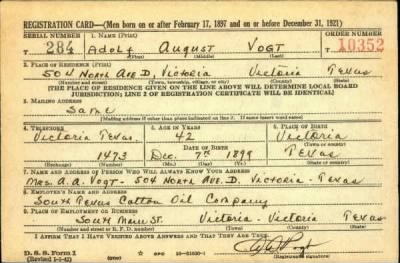 REGISTRATION CARD—(Men born on or after February 17, 1897 and on or before December 31, 1921)
SERIAL NUMBER 1. NAME (Print) ORDER NUMBER
T 284 Adolf August Vogt 10352
(First) (Middle) (Last)
2. PLACE OF RESIDENCE (Print)
504 North Ave D, Victoria Victoria Texas
(Number and street) (Town, township, village, or city) (County) (State)
[THE PLACE OF RESIDENCE GIVEN ON THE LINE ABOVE WILL DETERMINE LOCAL BOARD
JURISDICTION; LINE 2 OF REGISTRATION CERTIFICATE WILL BE IDENTICAL]
3. MAILING ADDRESS
Same
(Mailing address if other than place indicated on line 2. If same insert word same)
4. TELEPHONE 5. AGE IN YEARS 6. PLACE OF BIRTH
Victoria Texas 42 Victoria
DATE OF BIRTH (Town or county)
1473 Dec. 7th 1899 Texas
(Exchange) (Number) (Mo.) (Day) (Yr.) (State or country)
7. NAME AND ADDRESS OF PERSON WHO WILL ALWAYS KNOW YOUR ADDRESS
Mrs. A. A. Vogt - 504 North Ave. D. Victoria - Texas
8. EMPLOYER'S NAME AND ADDRESS
South Texas Cotton Oil Company
9. PLACE OF EMPLOYMENT OR BUSINESS
South Main St. Victoria - Victoria Texas
(Number and street or R. F. D. number) (Town) (County) (State)
I AFFIRM THAT I HAVE VERIFIED ABOVE ANSWERS AND THAT THEY ARE TRUE.
D. S. S. Form 1
(Revised 1-1-42) (over) GPO 16-21630-1